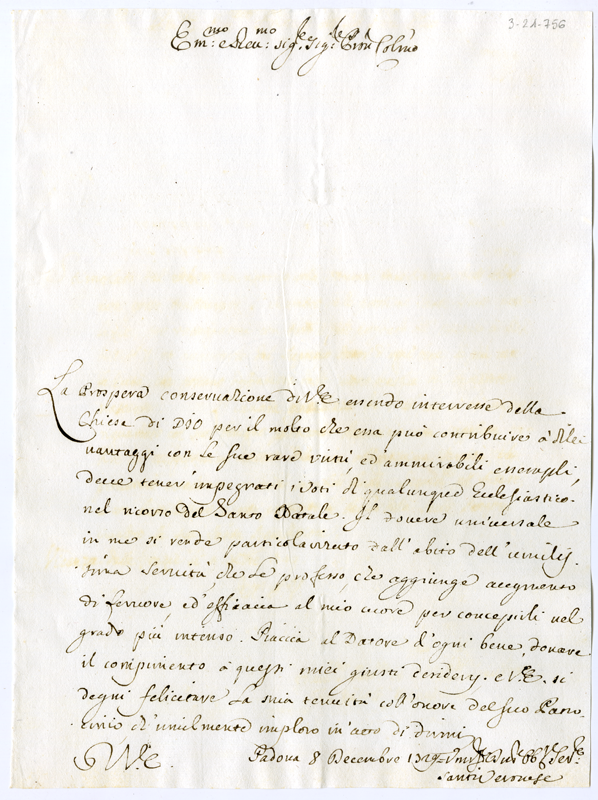 3-21-756
Em:mo e Reu:mo Sig:re Sig:re P'ron Colmo
La Prospera conseruazione di V.E. essendo interresse della
Chiesa di DIO per il molto che essa può contribuire à di lei
uantaggi con le sue rare uirtù, ed ammirabili essempli,
deue tener' impegnati i uoti di qualunque Ecclesiastico
nel ricorso del Santo Natale. Il douere uniuersale
in me si rende particolarizato dall' abito dell' umilis-
sima seruitù che le professo, che aggiunge accrescimento
di feruore, ed' efficacia al mio cuore per concepirli nel
grado più intenso. Piaccia al Datore d'ogni bene, donare
il compimento à questi miei giusti desiderij. e V.E. si
degni felicitare la mia tenuità coll' onore del suo Patro-
cinio ch' umilmente imploro in atto di dirmi
D V.E.
Padova 8 Decembre Um:mo Deu:mo Obb:mo Ser:re
Santi Veronese